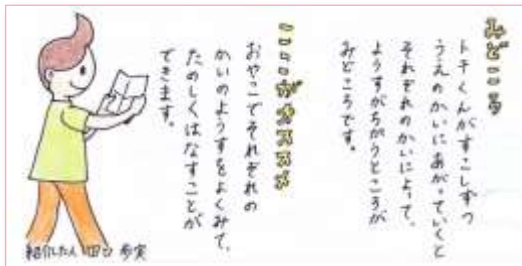 みどころ
トチくんがすこしずつ
うえのかいにあがっていくと
それぞれのかいによって、
ようすがちがうところが
みどころです。
ここがオススメ
おやこでそれぞれの
かいのようすをよくみて、
たのしくはなすことが
できます。
紹介した人 田口 歩実